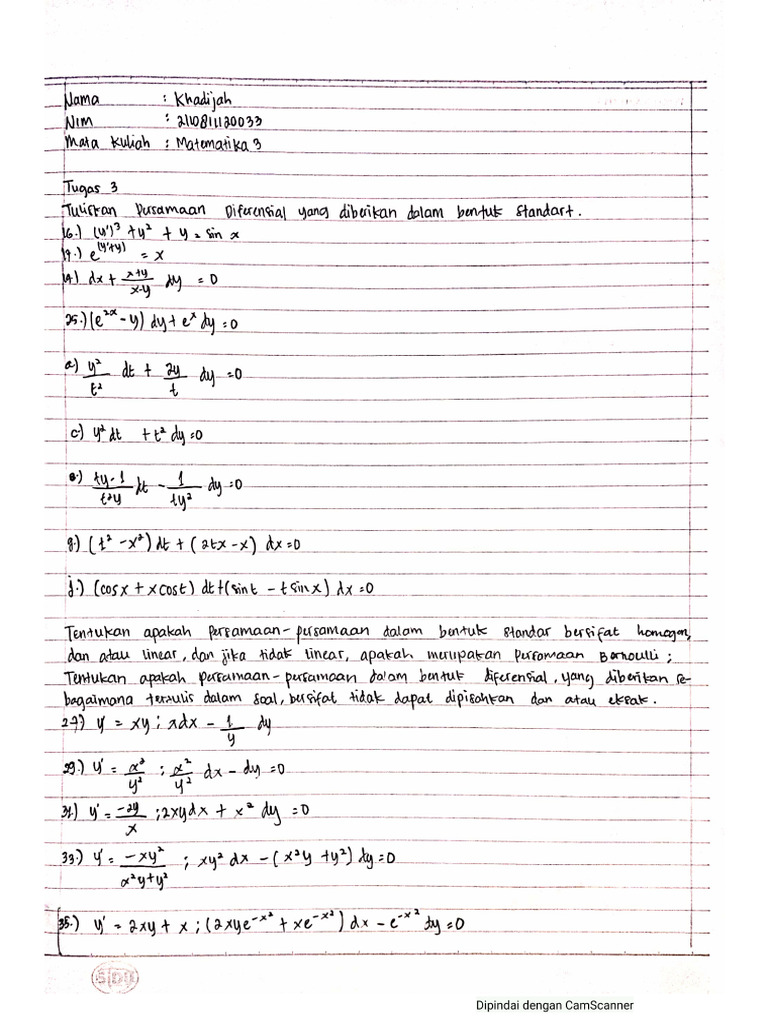 Nama : Khadijah
Nim : 2110811120033
Mata Kuliah : Matematika 3
Tugas 3
Tuliskan Persamaan Diferensial yang diberikan dalam bentuk Standart.
16.) (y')³ + y² + y = sin x
19.) e^(y'+y) = x
19) dx + (x+y)/(x-y) dy = 0
25.) (e^2x - y) dy + e^x dy = 0
a) y²/t² dt + 2y/t dy = 0
c.) y² dt + t² dy = 0
e.) (ty-1)/(t²y) dt - 1/(ty²) dy = 0
g.) (t² - x²) dt + (2tx - x) dx = 0
j.) (cos x + x cos t) dt + (sin t - t sin x) dx = 0
Tentukan apakah Persamaan-persamaan dalam bentuk standar bersifat homogen,
dan atau linear, dan jika tidak linear, apakah merupakan Persamaan Bernoulli ;
Tentukan apakah persamaan-persamaan dalam bentuk diferensial, yang diberikan se-
bagaimana tertulis dalam soal, bersifat tidak dapat dipisahkan dan atau eksak.
27) y' = xy ; xdx - 1/y dy
29.) y' = x²/y² ; x²/y² dx - dy = 0
31.) y' = -2y/x ; 2xydx + x² dy = 0
33.) y' = -xy²/(x²y+y²) ; xy² dx - (x²y + y²) dy = 0
35.) y' = 2xy + x ; (2xye^-x² + xe^-x²) dx - e^-x² dy = 0
SIDU
Dipindai dengan CamScanner